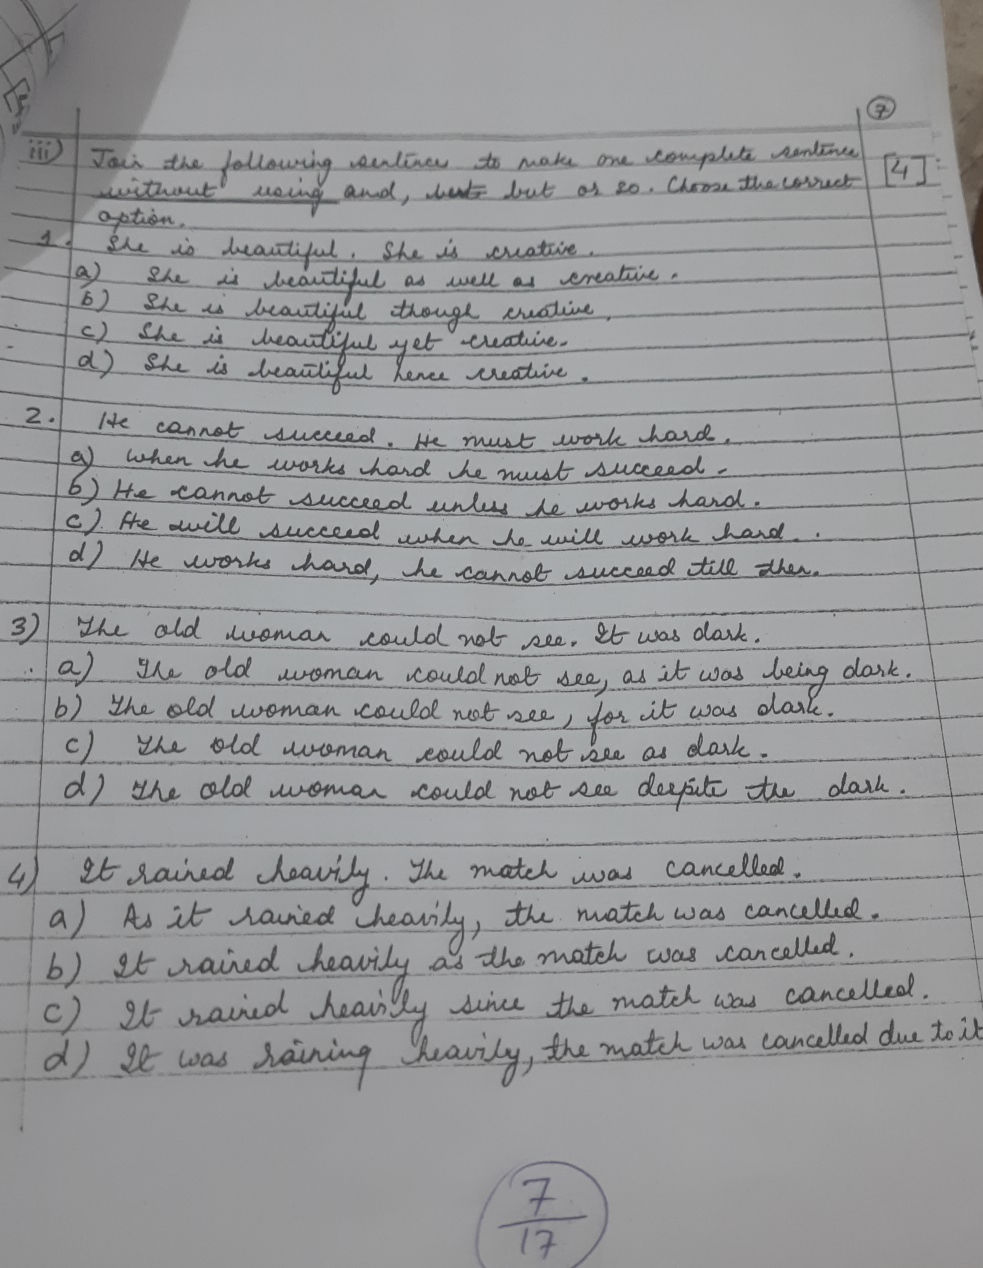 7
iii) Join the following sentences to make one complete sentence
without using and, but or so. Choose the correct [4]
option.
1. She is beautiful. She is creative.
a) She is beautiful as well as creative.
b) She is beautiful though creative.
c) She is beautiful yet creative.
d) She is beautiful hence creative.
2. He cannot succeed. He must work hard.
a) When he works hard he must succeed.
b) He cannot succeed unless he works hard.
c) He will succeed when he will work hard.
d) He works hard, he cannot succeed till then.
3) The old woman could not see. It was dark.
a) The old woman could not see, as it was being dark.
b) The old woman could not see, for it was dark.
c) The old woman could not see as dark.
d) The old woman could not see despite the dark.
4) It rained heavily. The match was cancelled.
a) As it rained heavily, the match was cancelled.
b) It rained heavily as the match was cancelled.
c) It rained heavily since the match was cancelled.
d) It was raining heavily, the match was cancelled due to it
7
17